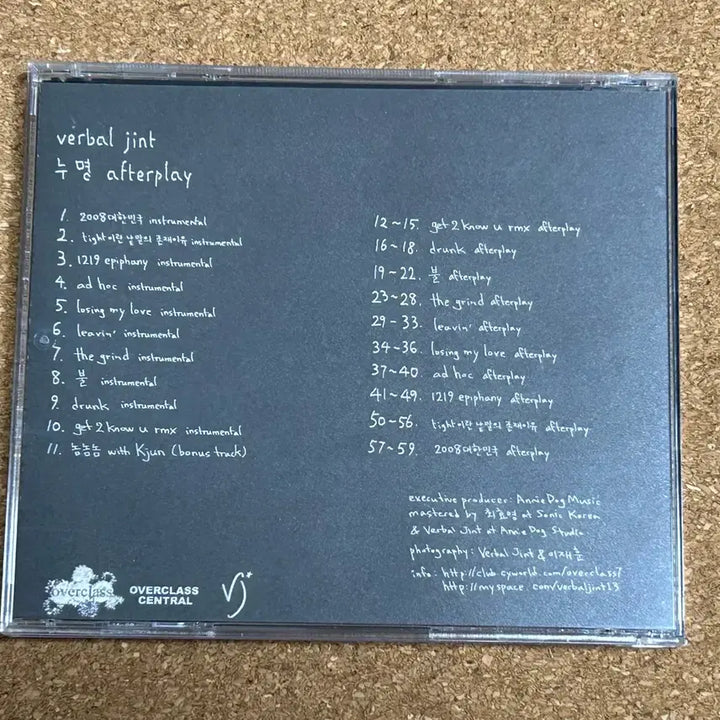 verbal jint
누명 afterplay
1. 2008대한민국 instrumental
2. tight이란 낱말의 존재이유 instrumental
3. 1219 epiphany instrumental
4. ad hoc instrumental
5. losing my love instrumental
6. leavin' instrumental
7. the grind instrumental
8. 불 instrumental
9. drunk instrumental
10. get 2 know u rmx instrumental
11. 놈놈놈 with Kjun (bonus track)
12~15. get 2 know u rmx afterplay
16~18. drunk afterplay
19~22. 불 afterplay
23~28. the grind afterplay
29~33. leavin' afterplay
34~36. losing my love afterplay
37~40. ad hoc afterplay
41~49. 1219 epiphany afterplay
50~56. tight이란 낱말의 존재이유 afterplay
57~59. 2008대한민국 afterplay
executive producer: Annie Dog Music
mastered by 최효영 at Sonic Korea
& Verbal Jint at Annie Dog Studio
photography: Verbal Jint &
info: http://club.cyworld.com/overclass7
http://myspace.com/verbaljint13
overclass
OVERCLASS
CENTRAL
vj*